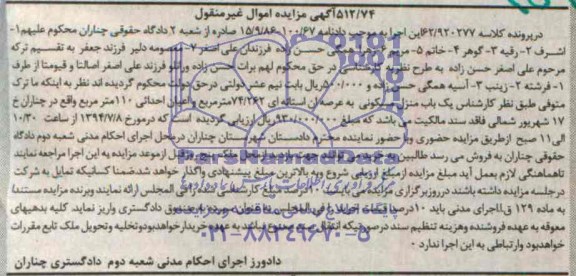 ۵۱۲/۷۴آگهی مزایده اموال غیرمنقول
درپرونده کلاسه ۶۲/۹۲۰۲۷۷این اجرا به موجب دادنامه ۱۰۰/۶۷-۱۵/۹/۸۶ صادره از شعبه ۲ دادگاه حقوقی چناران محکوم علیهم۱-
اشرف ۲-رقیه ۳-گوهر ۴- خاتم ۵- همگی حسن زاده فرزندان علی اصغر ۷-معصومه دلیر فرزند جعفر به تقسیم ترکه
مرحوم علی اصغر حسن زاده به طرح نظریه کارشناسی در حق محکوم لهم برات حسن زاده ورانلو فرزند علی اصغر اصالتا و قیومتا از طرف
۱- فرشته ۲-زینب ۳-آسیه همگی حسن زاده و ۵۰۰/۰۰۰ریال بابت نیم عشر دولتی درحق دولت محکوم گردیده اند نظر به اینکه ما ترک
متوفی طبق نظر کارشناس یک باب منزل مسکونی به عرصه آن استانه ای ۷۴/۲۶۲مترمربع و اعیان احداثی ۱۱۰متر مربع واقع در چناران خ
۱۷ شهریور شمالی فاقد سند مالکیت می باشد که مبلغ ۹۳۰/۰۰۰/۰۰۰ریال ارزیابی گردیده است که درمورخ ۱۳۹۴/۷/۸ از ساعت ۱۰/۳۰
الی۱۱ صبح ازطریق مزایده حضوری وبا حضور نماینده محترم دادستان شهرستان چناران درمحل اجرای احکام مدنی شعبه دوم دادگاه
حقوقی چناران به فروش می رسد طالبین روز قبل ازموعد مزایده به این اجرا مراجعه نمایند
تاهماهنگی لازم بعمل آید مبلغ مزایده ازمبلغ ارزیابی شروع وبه بالاترین مبلغ پیشنهادی واگذار خواهد شدضمنا کسانیکه تمایل به شرکت
درجلسه مزایده داشته باشند درروزبرگزاری فی المجلس ارائه نمایند وبرنده مزایده مستندا
به ماده ۱۲۹ ق.ااجرای مدنی باید ۱۰درصد فی المجلس به صندوق دادگستری واریز نماید. کلیه بدهیهای
معوقه به عهده فروشنده وهزینه تنظیم سند درصورتیکه انتقال به عهده خریدارخواهدبودوتخلیه وتحویل ملک تابع مقررات
خواهدبود وارتباطی به این اجرا ندارد
دادورز اجرای احکام مدنی شعبه دوم دادگستری چناران
ParsNamadData
۰۲۱-۸۸۳۴۹۶۷۰-۵